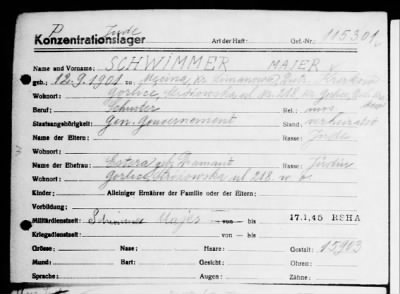 P Jude
Konzentrationslager Art der Haft: Gef.-Nr.: 115301
Name und Vorname: SCHWIMMER MAJER
geb.: 12.9.1901 zu: Męcina, Kr. Limanowa, Distr. Krakau
Wohnort: Gorlice, Nr. 218, Kr.
Beruf: Schuster Rel.: mos.
Staatsangehörigkeit: Gen. Gouvernement Stand: verheiratet
Name der Eltern: Rasse: Jude
Wohnort:
Name der Ehefrau: Estera geb. Diamant Rasse: Jüdin
Wohnort: Gorlice, ul 218. w. o.
Kinder: Alleiniger Ernährer der Familie oder der Eltern:
Vorbildung:
Militärdienstzeit: von — bis 17.1.45 RSHA
Kriegsdienstzeit: von — bis
Grösse: Nase: Haare: Gestalt: 15903
Mund: Bart: Gesicht: Ohren:
Sprache: Augen: Zähne: